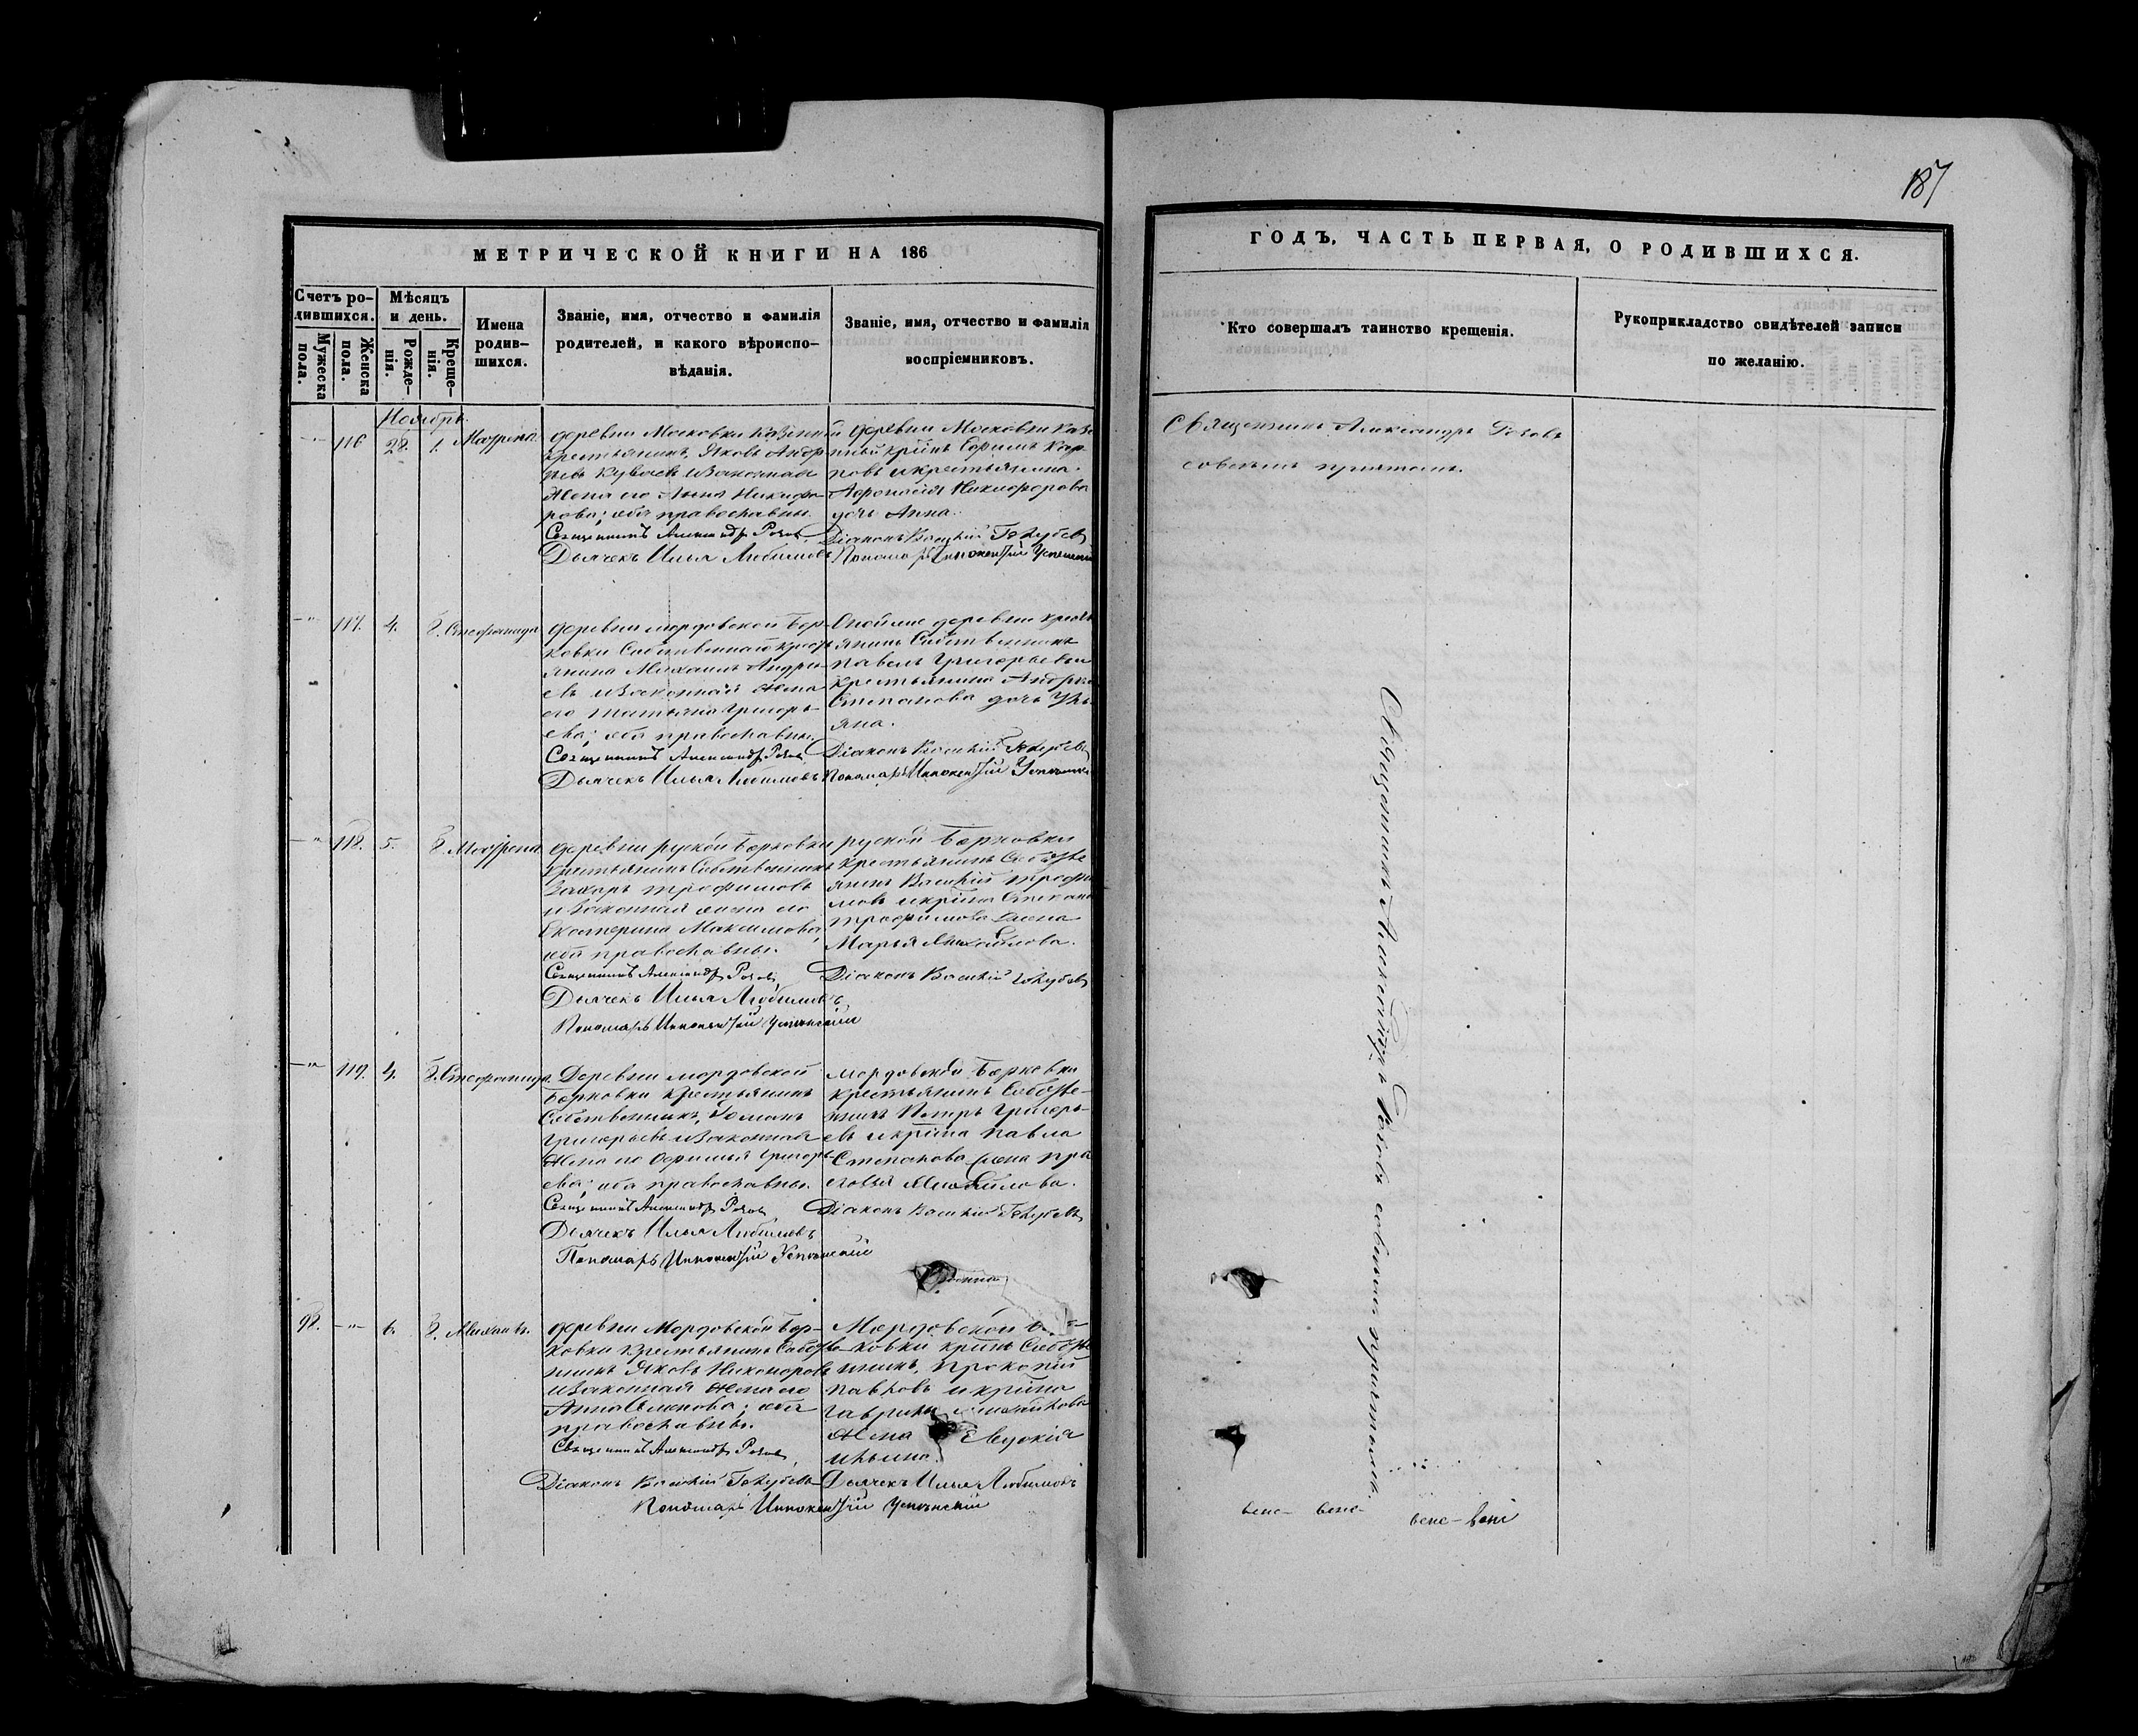 187
МЕТРИЧЕСКОЙ КНИГИ НА 186
Счетъ ро-
дившихся.
Мужеска пола.
Женска пола.
Мѣсяцъ
и день.
Рожде-
нія.
Креще-
нія.
Имена
родив-
шихся.
Званіе, имя, отчество и фамилія
родителей, и какого вѣроиспо-
вѣданія.
Званіе, имя, отчество и фамилія
воспріемниковъ.
ГОДЪ, ЧАСТЬ ПЕРВАЯ, О РОДИВШИХСЯ.
Кто совершалъ таинство крещенія.
Рукоприкладство свидѣтелей записи
по желанію.
Ноябрь.
116 28. 1. Мавррена
деревни Московки
крестьянинъ, Яковъ
изаконная
жена его Анна Никифо-
рова; оба православны.
Священникъ Александръ Розовъ
Дьячекъ Илья Любимовъ
деревни Московки
Ефимъ Кар-
повъ икрестьянина
Афонасія Никифорова
дочь Анна.
Діаконъ Василій Голубевъ
Пономарь Иннокентій Успенскій
Священникъ Александръ Розовъ
совсемъ причтомъ.
117. 4. 8. Стефанида
деревни мордовской Бор-
ковки
янина Михаилъ Андре-
евъ изаконная жена
его татьяна Григорь-
ева; оба православны.
Священникъ Александръ Розовъ
Дьячекъ Илья Любимовъ
деревни
янинъ Собственникъ
павелъ Григорьевъ
крестьянина Андрея
Степанова дочь Уль-
яна.
Діаконъ Василій Голубевъ
Пономарь Иннокентій Успенскій
118. 5. 8. Мавррена
деревни руской Борковки
крестьянинъ Собственникъ
Захаръ трофимовъ
изаконная жена его
Екатерина Максимова,
оба православны.
Священникъ Александръ Розовъ
Дьячекъ Илья Любимовъ
Пономарь Иннокентій Успенскій
руской Борковки
крестьянинъ
Василій трофи
мовъ Степана
трофимова жена
Марья Михайлова.
Діаконъ Василій Голубевъ
119. 4. 8. Стефанида.
Деревни мордовской
Борковки крестьянинъ
Собственникъ, Романъ
Григорьевъ изаконная
жена его Ефимья Григорь-
ева; оба православны.
Священникъ Александръ Розовъ
Дьячекъ Илья Любимовъ
Пономарь Иннокентій Успенскій
мордовской Борковки
крестьянинъ
Петръ Григорь-
евъ павла
Степанова жена пра
сковья Михайлова.
Діаконъ Василій Голубевъ
98. 6. 8. Михаилъ.
деревни Мордовской Бор-
ковки крестьянинъ
Яковъ Никоноровъ
изаконная жена его
Анна Семенова; оба
православны.
Священникъ Александръ Розовъ
Діаконъ Василій Голубевъ
Пономарь Иннокентій Успенскій
Мордовской
ковки
Прокопій
павловъ
Гаврилы Михайлова
жена Евдокія
ильина.
Дьячекъ Илья Любимовъ
Священникъ Александръ Розовъ совсемъ причтомъ.